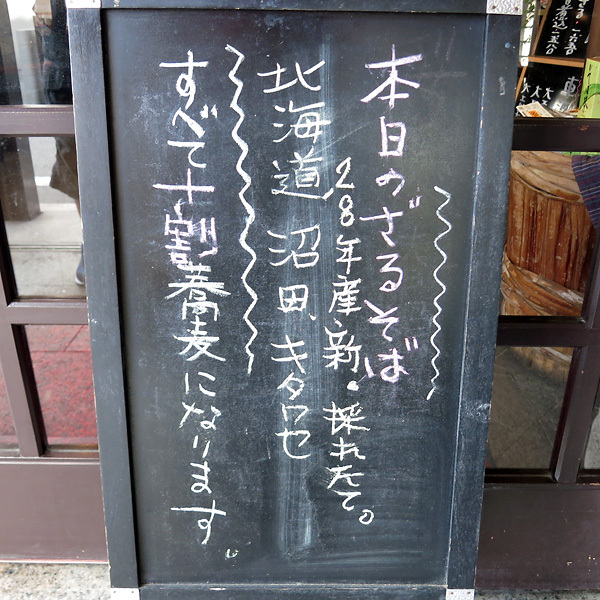 本日のざるそば
28年産新・採れたて。
北海道 沼田、キタワセ
すべて十割蕎麦になります。